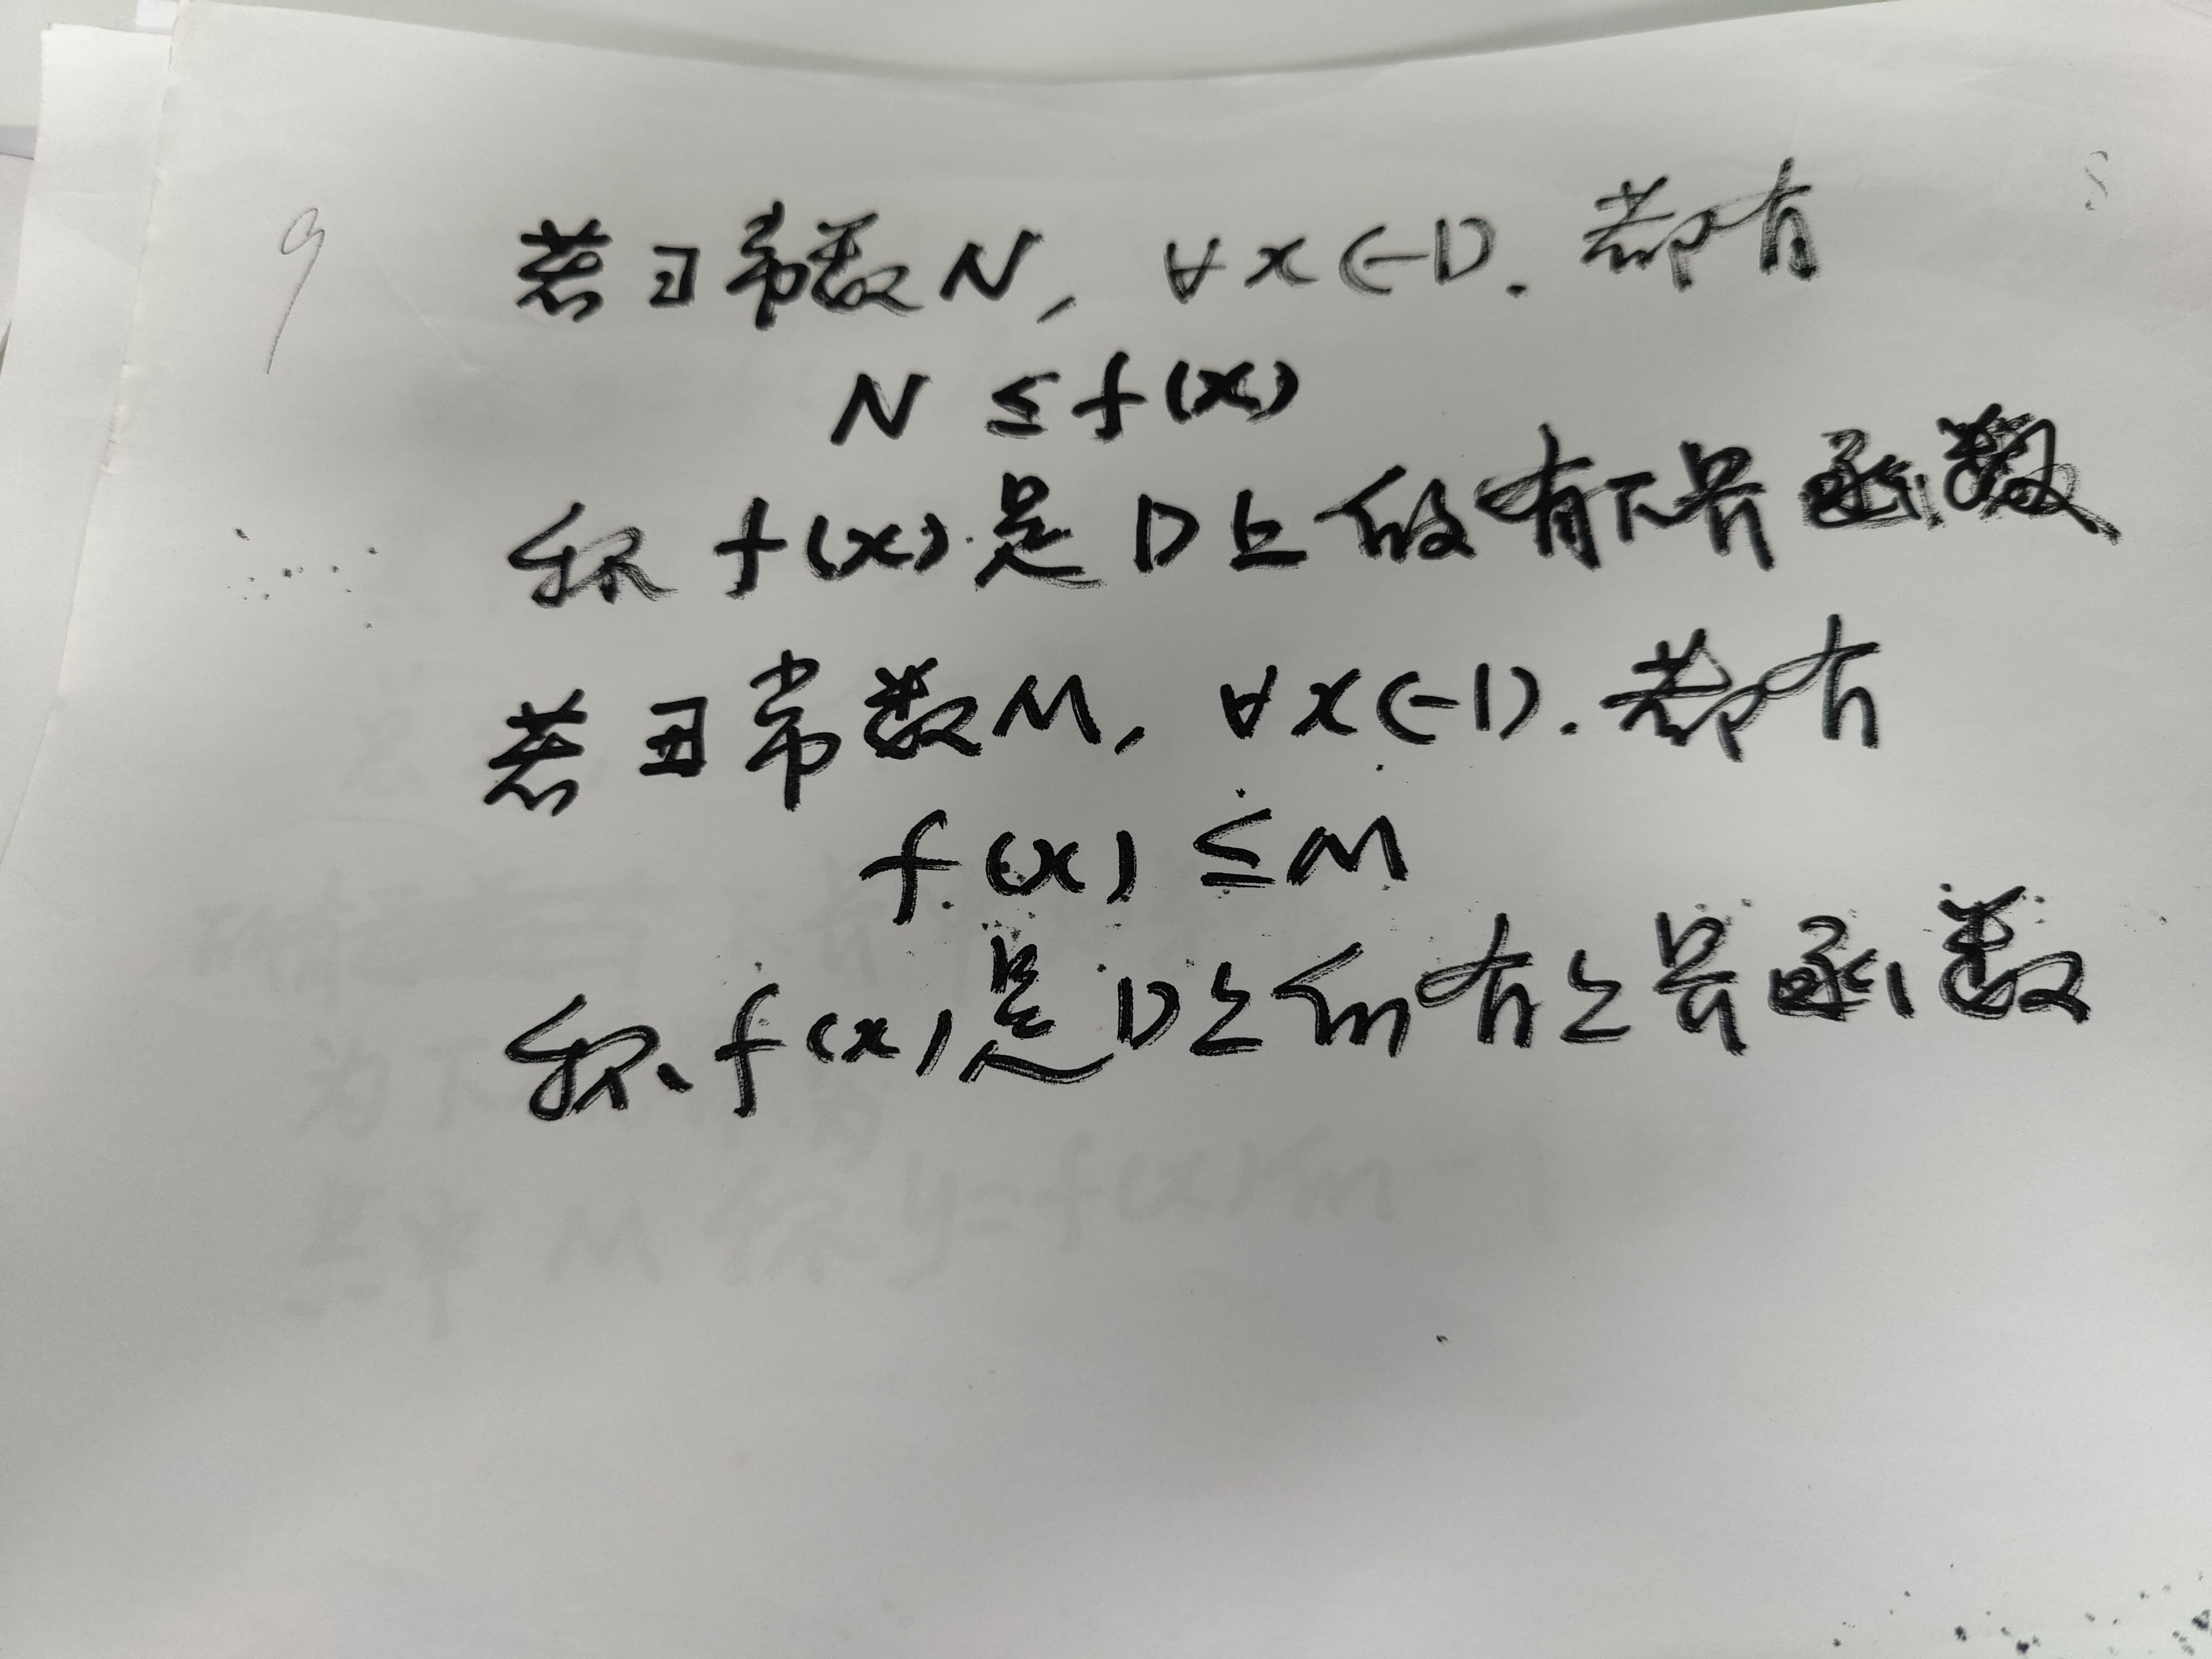 9
若∃常数N, ∀x∈D. 都有
N ≤ f(x)
称 f(x)是D上的有下界函数
若∃常数M, ∀x∈D. 都有
f(x) ≤ M
称 f(x)是D上的有上界函数